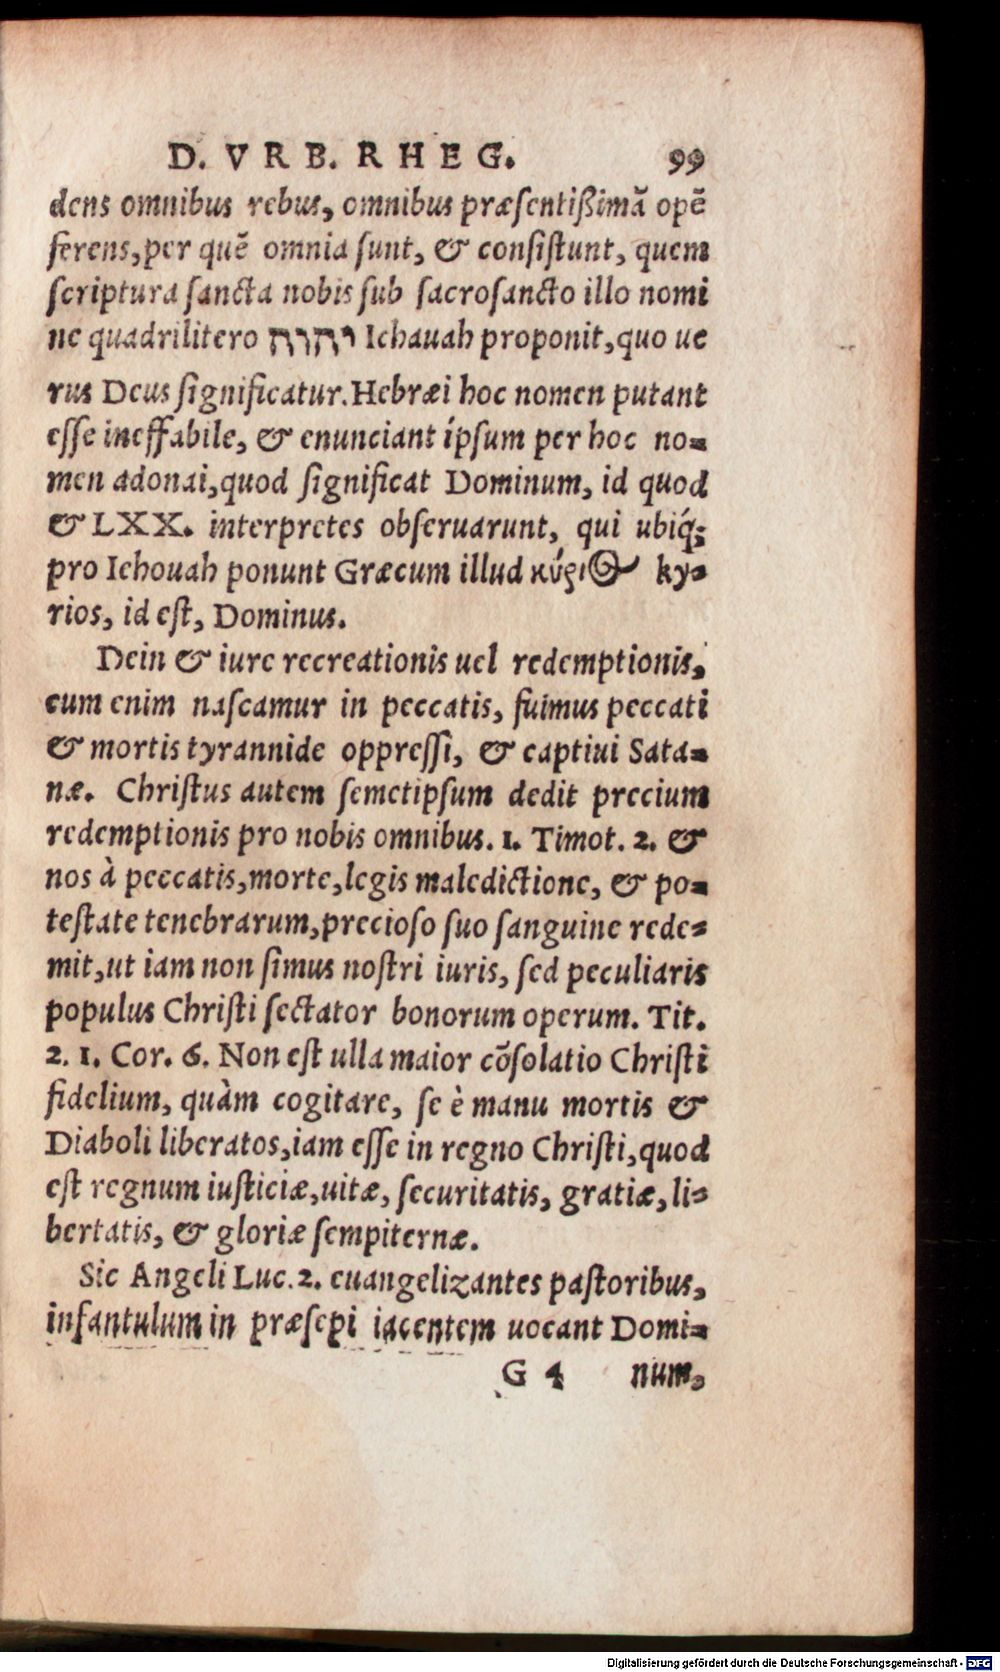 D. VRB. RHEG. 99
dens omnibus rebus, omnibus præsentißimã opẽ
ferens, per quẽ omnia sunt, & consistunt, quem
scriptura sancta nobis sub sacrosancto illo nomi
ne quadrilitero יהוה Iehauah proponit, quo ue
rus Deus significatur. Hebræi hoc nomen putant
esse ineffabile, & enunciant ípsum per hoc no-
men adonai, quod significat Dominum, id quod
& LXX. interpretes obseruarunt, qui ubiq́;
pro Iehouah ponunt Græcum illud κύριος ky-
rios, id est, Dominus.
Dein & iure recreationis uel redemptionis,
cum enim nascamur in peccatis, fuimus peccati
& mortis tyrannide oppressi, & captiui Sata-
næ. Christus autem semetipsum dedit precium
redemptionis pro nobis omnibus. 1. Timot. 2. &
nos à peccatis, morte, legis maledictione, & po-
testate tenebrarum, precioso suo sanguine rede-
mit, ut iam non simus nostri iuris, sed peculiaris
populus Christi sectator bonorum operum. Tit.
2. 1. Cor. 6. Non est ulla maior cõsolatio Christi
fidelium, quàm cogitare, se è manu mortis &
Diaboli liberatos, iam esse in regno Christi, quod
est regnum iusticiæ, uitæ, securitatis, gratiæ, li-
bertatis, & gloriæ sempiternæ.
Sic Angeli Luc. 2. euangelizantes pastoribus,
infantulum in præsepi iacentem uocant Domi-
G 4 num,
Digitalisierung gefördert durch die Deutsche Forschungsgemeinschaft - DFG